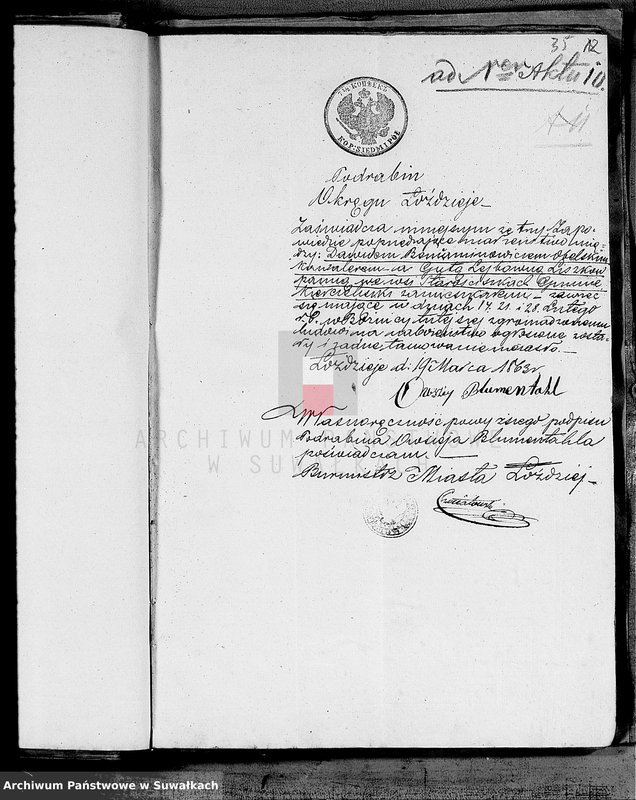 35 12
ad Nrm Aktu 10.
7½ KOPIEK
KOP. SIEDM I PÓŁ
Podrabin
Okręgu Łoździeje
Zaświadcza niniejszym że trzy Zapo-
wiedzie poprzedzające małżeństwo mię-
dzy: Dawidem Beniaminowiczem
kawalerem a Gutą Lejbówną
panną we wsi Gminie
zamieszkałemi zawrzeć
się mające w dniach 14. 21. i 28. Lutego
r. b. w Bóżnicy tutejszej zgromadzonemu
ludowi na nabożeństwo ogłoszone zosta-
ły i żadne tamowanie niezaszło.
Łoździeje d. 19 Marca 1863 r
Owsiey Blumentahl
Własnoręczność powyższego podpisu
Podrabina Owsieja Blumentahla
poświadczam.
Burmistrz Miasta Łoździej
ARCHIWUM
W SUWAŁKACH
Archiwum Państwowe w Suwałkach